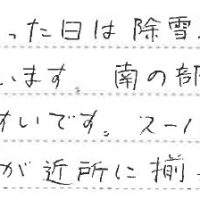 った日は除雪
います。南の部
すいです。スーパ
が近所に揃